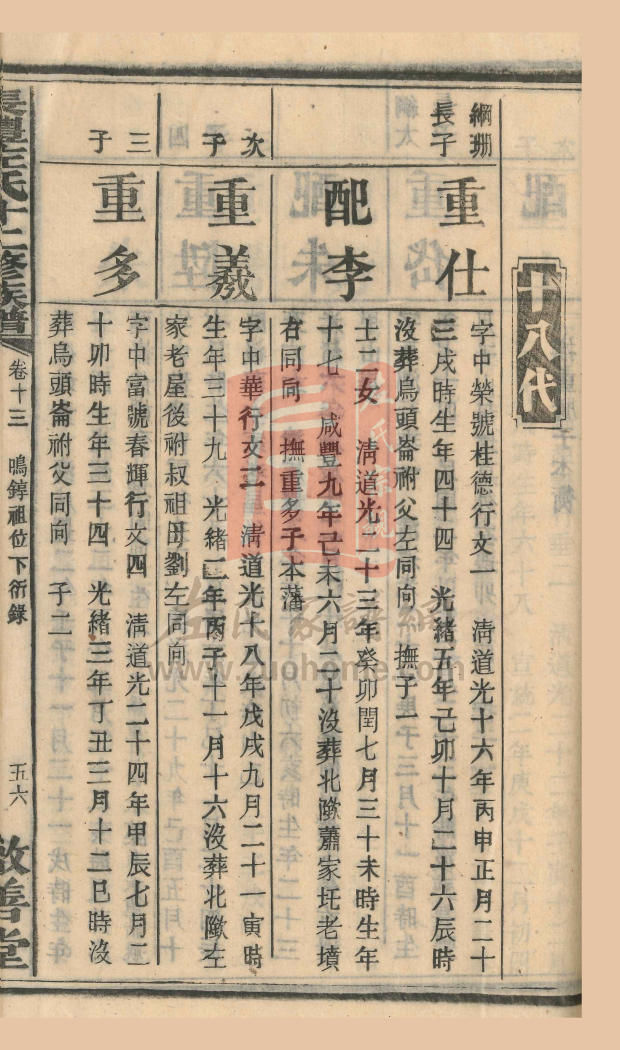 十八代
綱珊
長子
重仕
字中榮號桂德行文一 清道光十六年丙申正月二十
三戌時生年四十四 光緒五年己卯十月二十六辰時
沒葬烏頭崙祔父左同向 撫子一
配李
士二女 清道光二十三年癸卯閏七月三十未時生年
十七 咸豐九年己未六月二十沒葬北歟蕭家圫老墳
右同向 撫重多子本藩
次
子
重羲
字中華行文二 清道光十八年戊戌九月二十一寅時
生年三十九 光緒二年丙子十一月十六沒葬北歟左
家老屋後祔叔祖母劉左同向
三
子
重多
字中富號春輝行文四 清道光二十四年甲辰七月二
十卯時生年三十四 光緒三年丁丑三月十二巳時沒
葬烏頭崙祔父同向 子二
左氏十二修族譜
卷十三
鳴錞祖位下衍錄
五六
敦善堂
左氏家譜網
www.zuohome.com